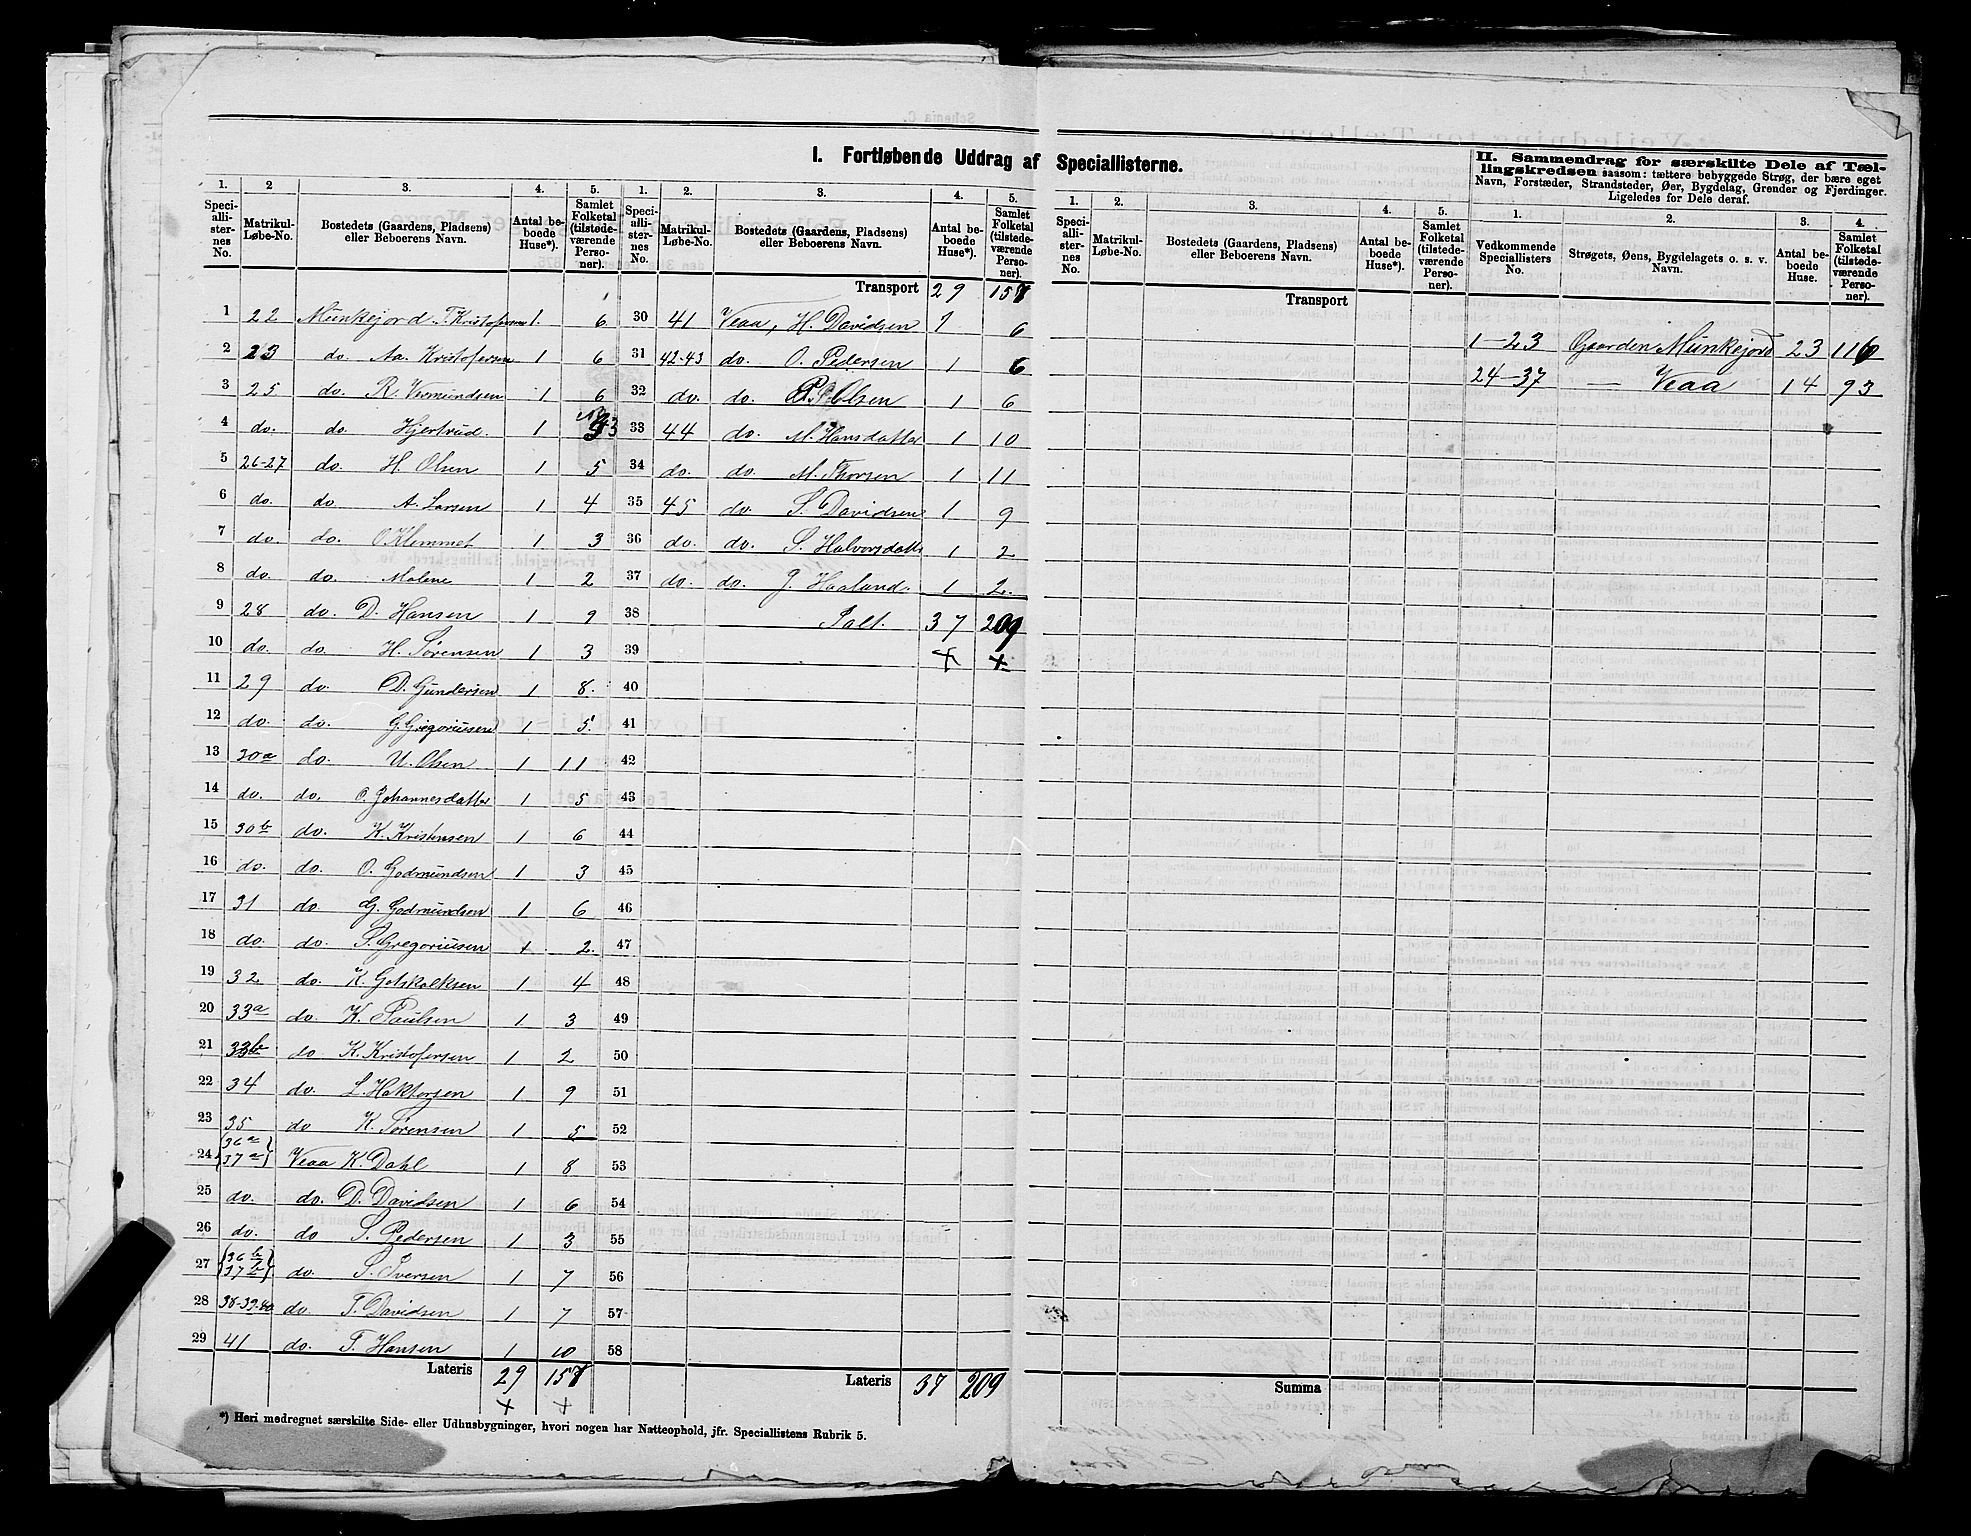 I. Fortløbende Uddrag af Speciallisterne.
1. 2 3. 4. 5.
Speciallisternes No. Matrikul-Løbe-No. Bostedets (Gaardens, Pladsens) eller Beboerens Navn. Antal beboede Huse*). Samlet Folketal (tilstedeværende Personer).
1 22 Munkejord T. Kristofersen 1. 6
2 23 do. Aa. Kristofersen 1 6
3 25 do. R. Vermundsen 1 6
4 do. do. Hjertrud. 1 3
5 26-27 do. H. Olsen 1 5
6 do. do A. Larsen 1 4
7 do. do. O. Klemmet 1 3
8 do. do. Malene 1 2
9 28 do. D. Hansen 1 9
10 do. do. H. Sørensen 1 3
11 29 do. D. Gundersen 1 8.
12 do. do. G. Gregoriussen 1 5.
13 30a do. U. Olsen 1 11
14 do. do. O. Johannesdatter 1 5
15 30b do. K. Kristensen 1 6
16 do. do. O. Godmundsen 1 3
17 31 do. G. Godmundsen 1 6
18 do. do. P. Gregoriusen + 2.
19 32. do. K. Gotskalksen 1 4
20 33a do. K. Paulsen 1 3
21 33b do. K. Kristofersen 1 2
22 34 do. L. Haktorsen 1 9
23 35 do K. Sørensen 1 5
24 {36a 37a} Veaa K. Dahl 1 8
25 do. do. D. Davidsen 1 6
26 do. do S. Pedersen 1 3
27 {36b 37b} do. S. Iversen 1 7
28 38-39-40 do. T. Davidsen 1 7
29 41 do. T. Hansen 1 10
Lateris 29 157
+ +
*) Heri medregnet særskilte Side- eller Udhusbygninger, hvori nogen har Natteophold, jfr. Speciallistens Rubrik 5.
1. 2. 3. 4. 5.
Speciallisternes No. Matrikul-Løbe-No. Bostedets (Gaardens, Pladsens) eller Beboerens Navn. Antal beboede Huse*). Samlet Folketal (tilstedeværende Personer).
Transport 29 157
30 41 Veaa, H. Davidsen 1 6
31 42-43 do. O. Pedersen 1 6
32 do. do. P. Olsen 1 6
33 44 do. M. Hansdatter 1 10
34 do. do. M. Thorsen 1 11
35 45 do. S. Davidsen 1 9
36 do. do. S. Halvorsdatter 1 2
37 do. do. J. Haaland. 1 2.
38 Ialt. 37 209
39 + +
40
41
42
43
44
45
46
47
48
49
50
51
52
53
54
55
56
57
58
Lateris 37 209
1. 2. 3. 4. 5.
Speciallisternes No. Matrikul-Løbe-No. Bostedets (Gaardens, Pladsens) eller Beboerens Navn. Antal beboede Huse*). Samlet Folketal (tilstedeværende Personer).
Transport
Summa
II. Sammendrag for særskilte Dele af Tællingskredsen saasom: tættere bebyggede Strøg, der bære eget Navn, Forstæder, Strandsteder, Øer, Bygdelag, Grender og Fjerdinger. Ligeledes for Dele deraf.
1. 2. 3. 4.
Vedkommende Speciallisters No. Strøgets, Øens, Bygdelagets o. s. v. Navn. Antal beboede Huse. Samlet Folketal (tilstedeværende Personer).
1-23 Gaarden Munkejord 23 116
24-37 — Veaa 14 93